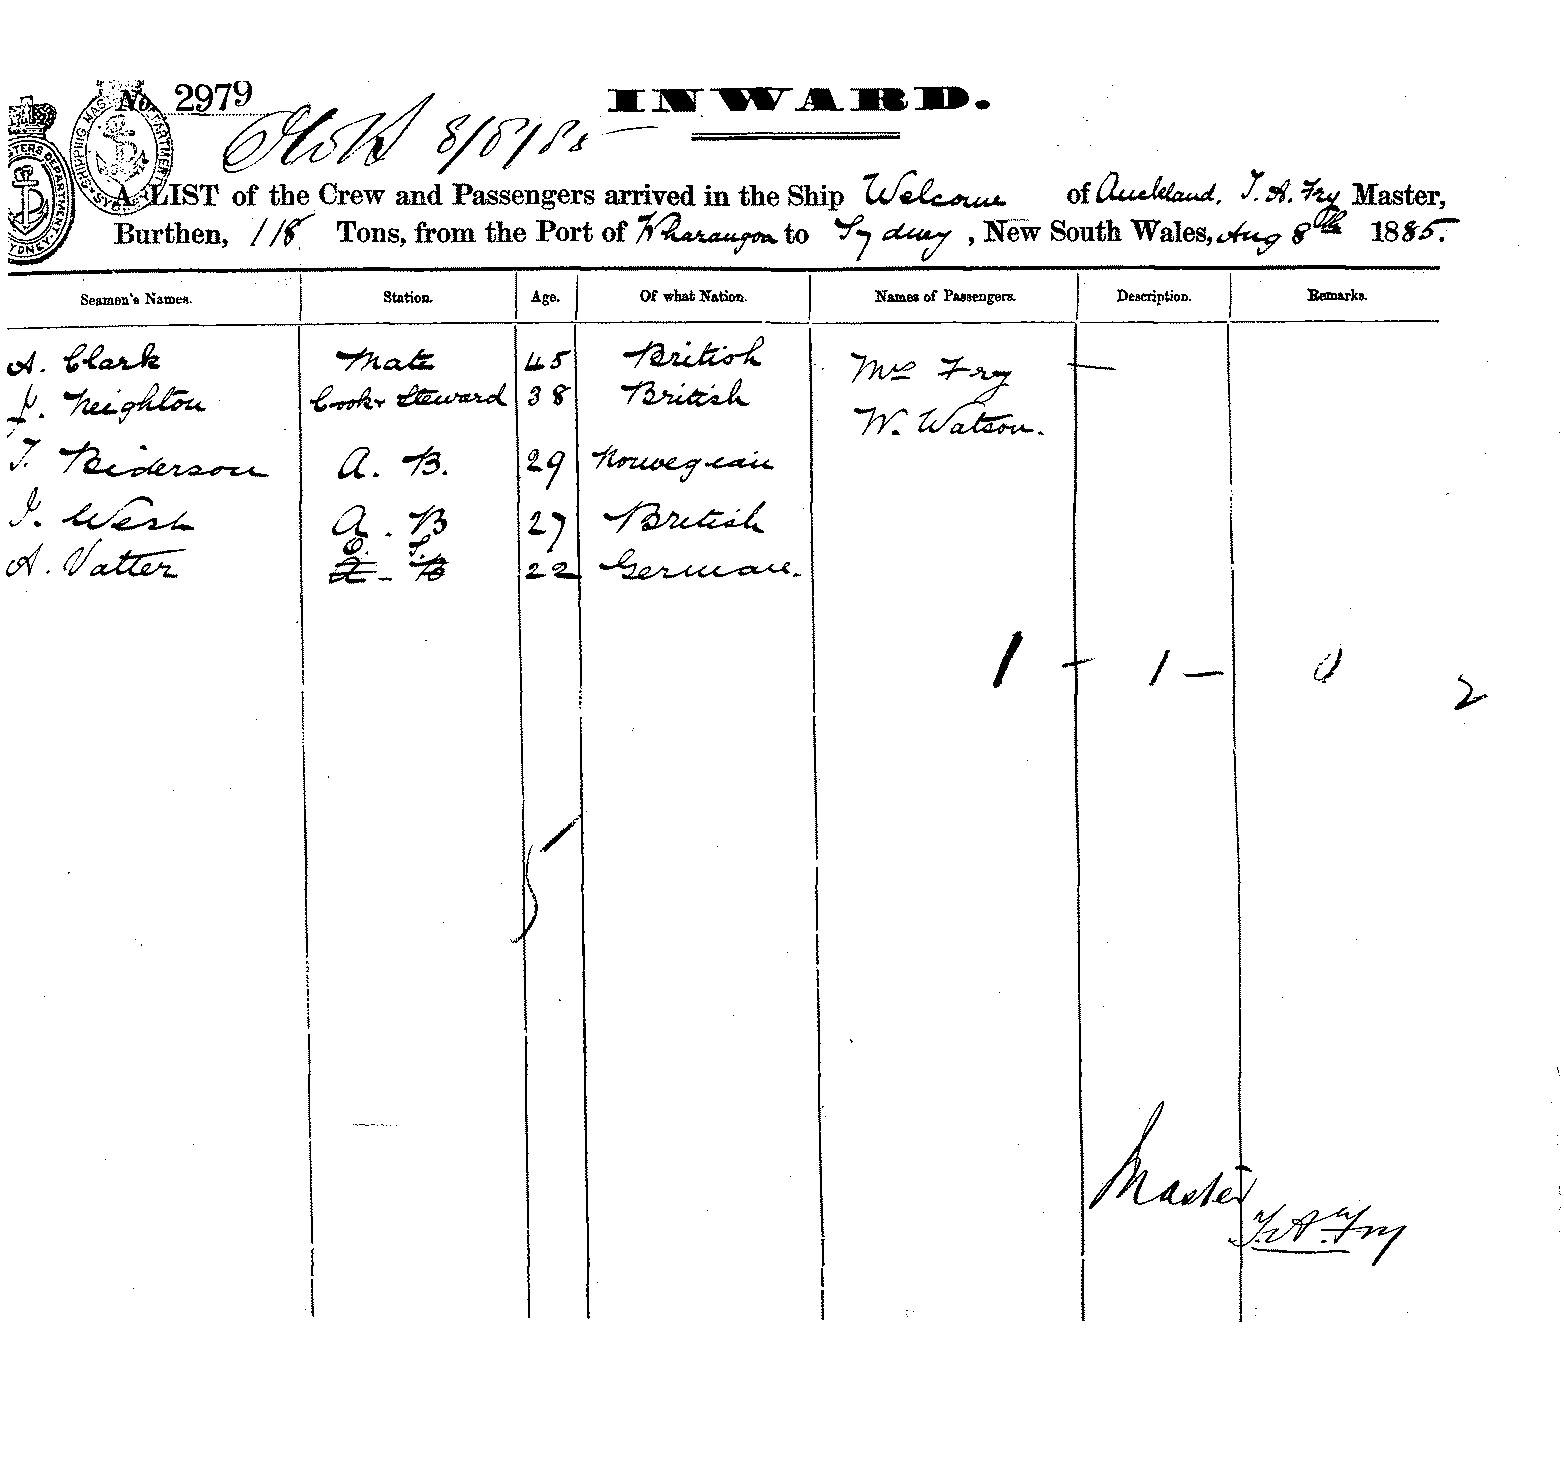 No. 2979
INWARD.
8/8/85
A LIST of the Crew and Passengers arrived in the Ship Welcome of Auckland, T. A. Fry Master,
Burthen, 118 Tons, from the Port of Wharangoa to Sydney, New South Wales, Aug 8th 1885.
Seamen's Names. Station. Age. Of what Nation. Names of Passengers. Description. Remarks.
A. Clark Mate 45 British Mrs Fry —
J. Neighton Cook & Steward 38 British W. Watson.
T. Biderson A. B. 29 Norwegian
J. West A. B 27 British
A. Vatter O. S. 22 German.
1 — 1 — 0 2
5
Master
T. A. Fry